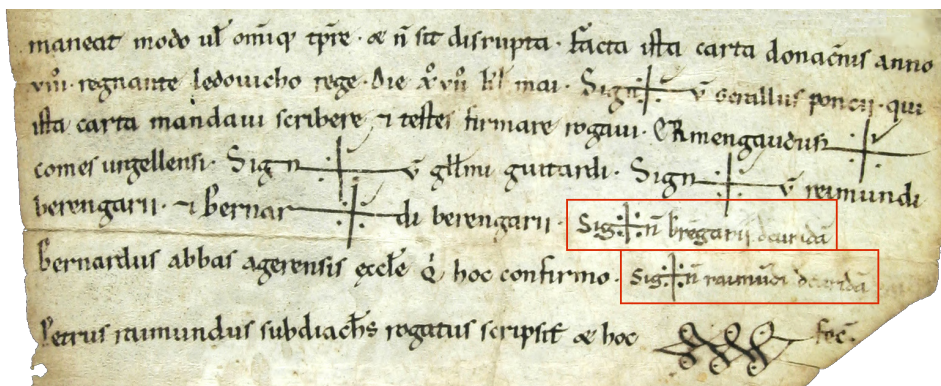 maneat modo ul̄ om̄iq; tp̄re · & n̄ sit disrupta · Facta ista carta donac̄nis anno
viiii · regnante ledouicho rege · die x̊vıı̊ kl̄ mai · Sig+n̄ gerallus poncii · qui
ista carta mandaui scribere & testes firmare rogaui · ERmengaudus +
comes urgellensi · Sign + ū gll̄mi guitardi · Sign + ū reimundi
berengarii · & bernar + di berengarii · Sig+n̄ br̄egarii
bernardus abbas agerensis eccl̄e q̇ hoc confirmo · Sig+n̄ raimūdi
Petrus raimundus subdiach̄s rogatus scripsit & hoc fec̄.